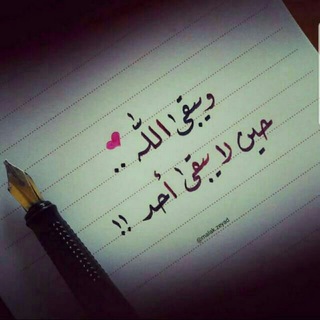 ويبقىٰ اللّٰه ..
حين لا يبقىٰ أحد !!
@malak_zeyad